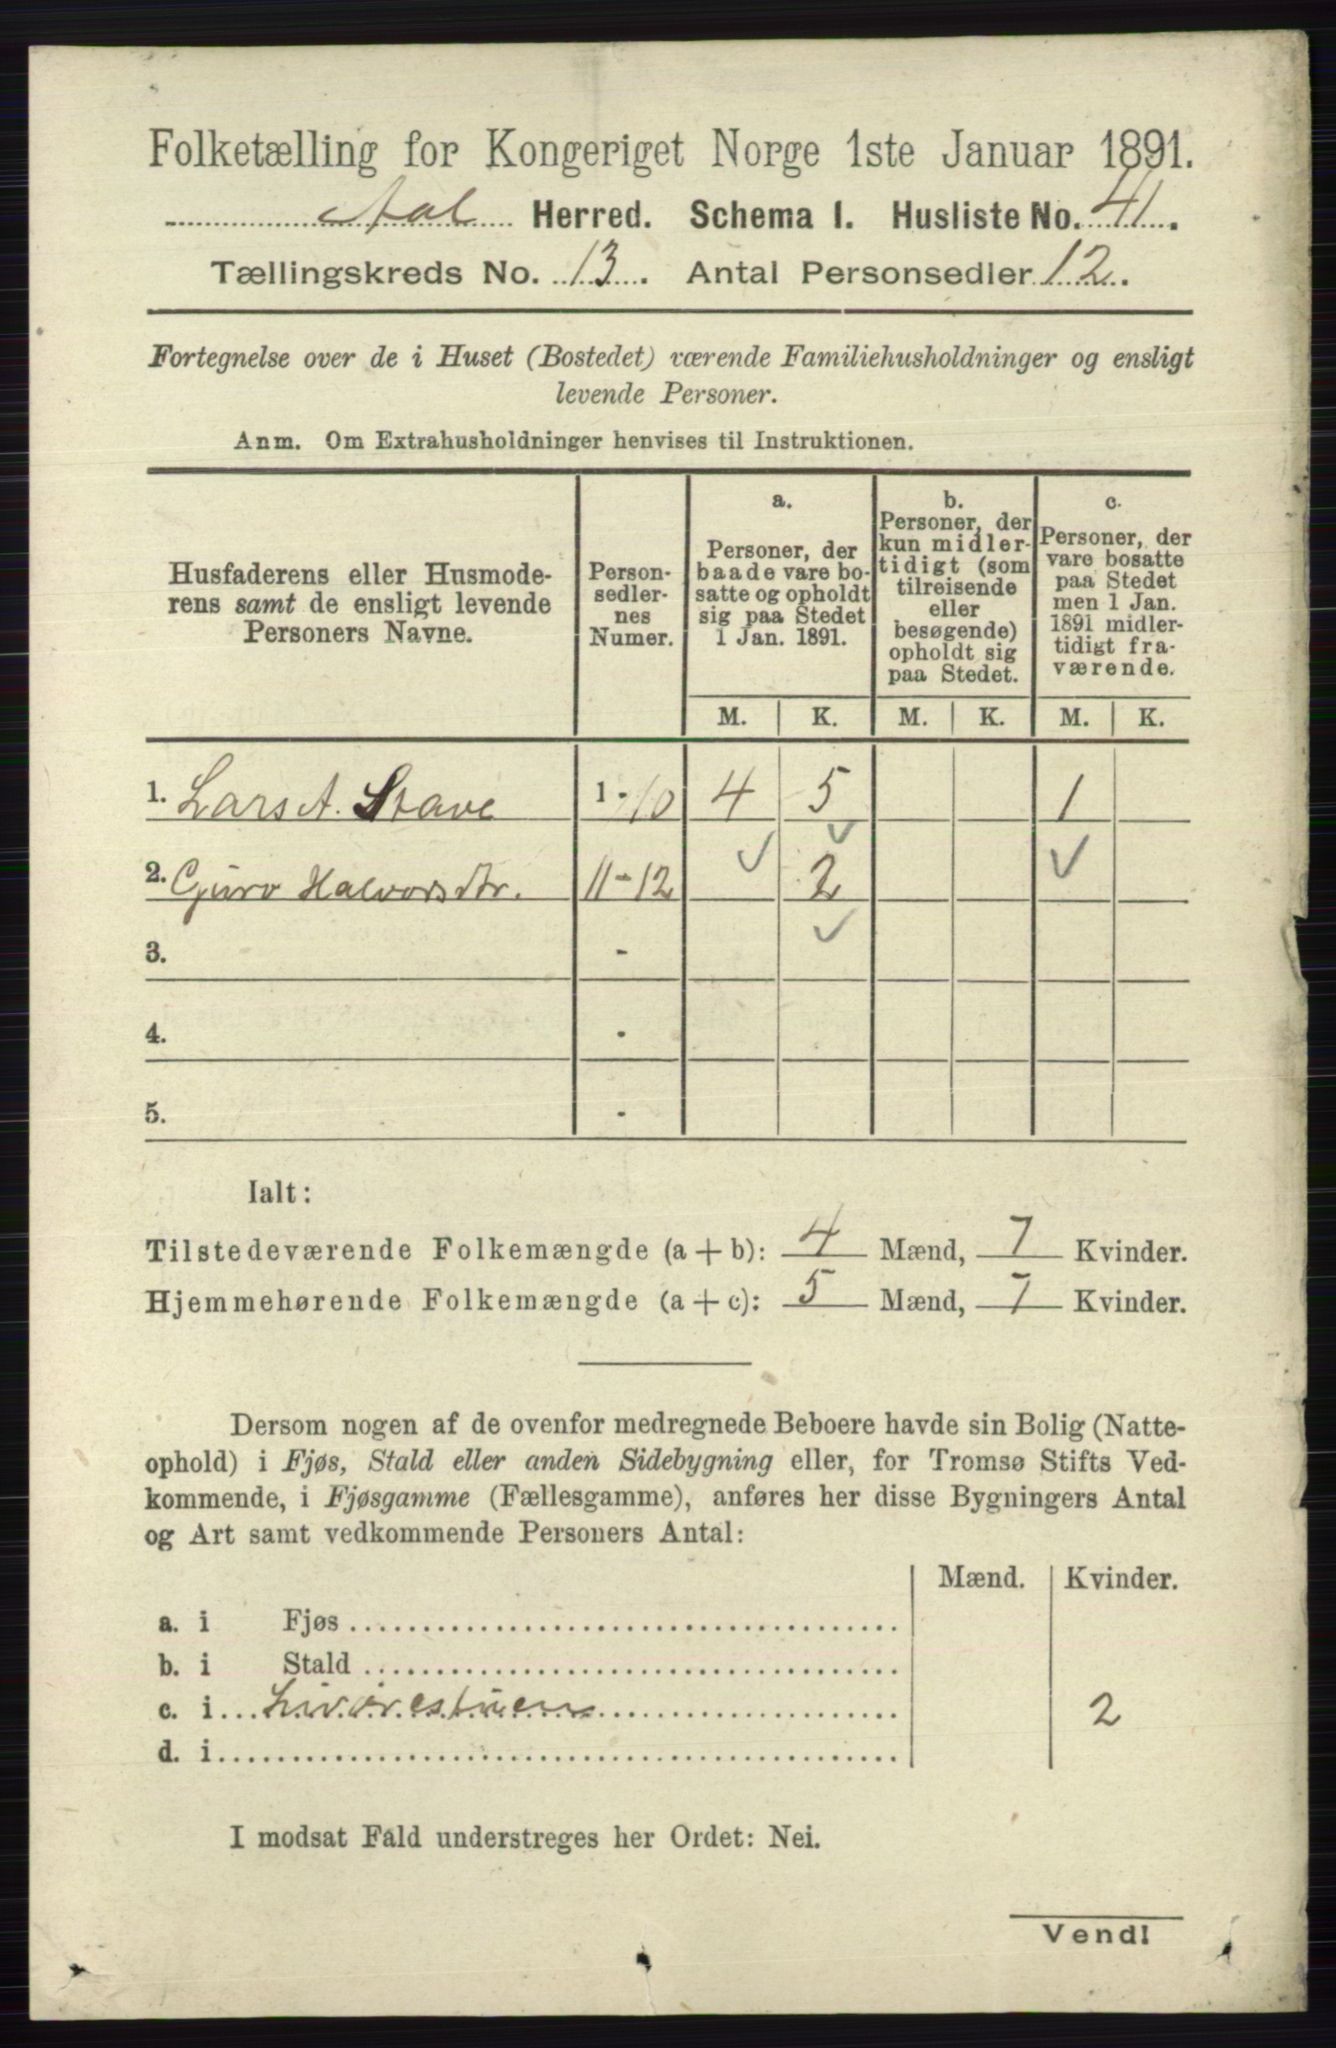 Folketælling for Kongeriget Norge 1ste Januar 1891.
Aal Herred. Schema I. Husliste No. 41.
Tællingskreds No. 13. Antal Personsedler 12.
Fortegnelse over de i Huset (Bostedet) værende Familiehusholdninger og ensligt
levende Personer.
Anm. Om Extrahusholdninger henvises til Instruktionen.
Husfaderens eller Husmode-
rens samt de ensligt levende
Personers Navne.
Person-
sedler-
nes
Numer.
a.
Personer, der
baade vare bo-
satte og opholdt
sig paa Stedet
1 Jan. 1891.
b.
Personer, der
kun midler-
tidigt (som
tilreisende
eller
besøgende)
opholdt sig
paa Stedet.
c.
Personer, der
vare bosatte
paa Stedet
men 1 Jan.
1891 midler-
tidigt fra-
værende.
M. K. M. K. M. K.
1. Lars A. Stave 1-10 4 5 1
2. Guro Halvorsdtr. 11-12 2
3. -
4. -
5. -
Ialt:
Tilstedeværende Folkemængde (a + b): 4 Mænd, 7 Kvinder.
Hjemmehørende Folkemængde (a + c): 5 Mænd, 7 Kvinder.
Dersom nogen af de ovenfor medregnede Beboere havde sin Bolig (Natte-
ophold) i Fjøs, Stald eller anden Sidebygning eller, for Tromsø Stifts Ved-
kommende, i Fjøsgamme (Fællesgamme), anføres her disse Bygningers Antal
og Art samt vedkommende Personers Antal:
Mænd. Kvinder.
a. i Fjøs
b. i Stald
c. i Livørestuen 2
d. i
I modsat Fald understreges her Ordet: Nei.
Vend!